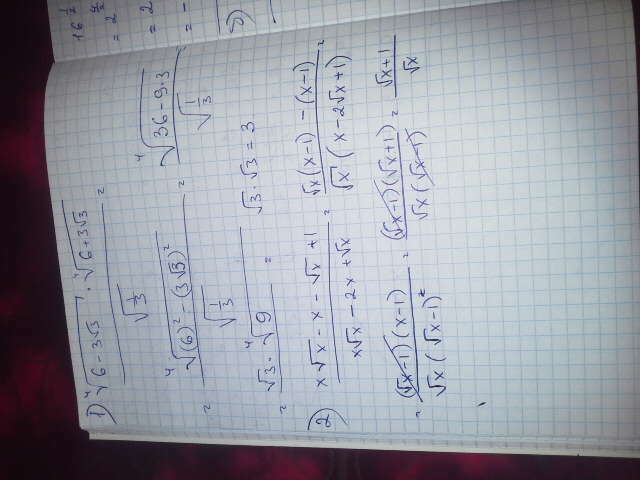 16^(1/2)
= 2
= 2
= -
1) (⁴√(6 - 3√3) · ⁴√(6 + 3√3)) / √(1/3) =
= ⁴√((6)² - (3√3)²) / √(1/3) = ⁴√(36 - 9·3) / √(1/3)
= √3 · ⁴√9 = √3 · √3 = 3
2) (x√x - x - √x + 1) / (x√x - 2x + √x) = (√x(x-1) - (x-1)) / (√x(x - 2√x + 1)) =
= ((√x-1)(x-1)) / (√x(√x-1)²) = ((√x-1)(√x+1)) / (√x(√x-1)) = (√x+1) / √x